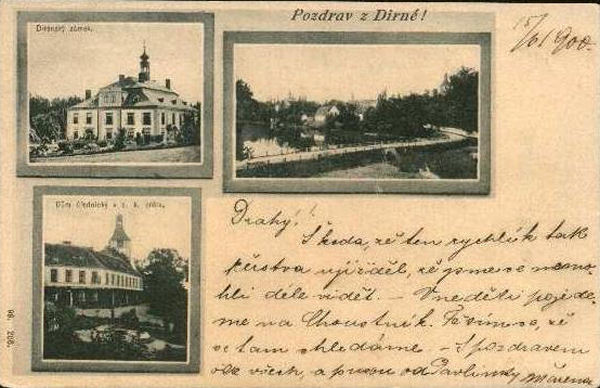 Pozdrav z Dirné!
5/6 1900.
Dírenský zámek.
Dům úřednický a c. k. pošta.
Drahý!
Škoda, že ten rychlík tak
ujížděl, že jsme se nemo-
hli déle vidět. — V neděli pojede-
me na Choustník. Těším se, že
se tam shledáme. S pozdravem
ode všech, a pusou od Pavlinky
98. 206.